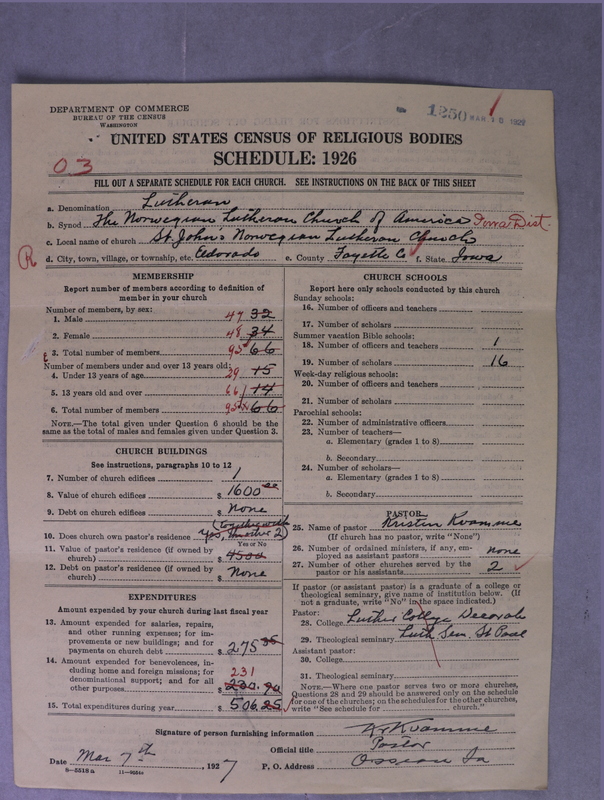 DEPARTMENT OF COMMERCE
BUREAU OF THE CENSUS
WASHINGTON
1250 MAR 10 1927
1
UNITED STATES CENSUS OF RELIGIOUS BODIES
SCHEDULE: 1926
03
FILL OUT A SEPARATE SCHEDULE FOR EACH CHURCH. SEE INSTRUCTIONS ON THE BACK OF THIS SHEET
a. Denomination Lutheran
b. Synod The Norwegian Lutheran Church of America Iowa Dist.
c. Local name of church St. John's Norwegian Lutheran Church
R
d. City, town, village, or township, etc. Eldorado e. County Fayette Co f. State Iowa
MEMBERSHIP
Report number of members according to definition of
member in your church
Number of members, by sex:
1. Male 47 32
2. Female 48 34
3. Total number of members 95 66
Number of members under and over 13 years old:
4. Under 13 years of age 29 15
5. 13 years old and over 66 14
6. Total number of members 95 66
NOTE.—The total given under Question 6 should be the
same as the total of males and females given under Question 3.
CHURCH BUILDINGS
See instructions, paragraphs 10 to 12
7. Number of church edifices 1
8. Value of church edifices $ 1600 00
9. Debt on church edifices $ None
(together with
10. Does church own pastor's residence Yes, another 2)
Yes or No
11. Value of pastor's residence (if owned by
church) $ 4500
12. Debt on pastor's residence (if owned by
church) $ None
EXPENDITURES
Amount expended by your church during last fiscal year
13. Amount expended for salaries, repairs,
and other running expenses; for im-
provements or new buildings; and for
payments on church debt $ 275 35
14. Amount expended for benevolences, in-
cluding home and foreign missions; for
denominational support; and for all
other purposes 231
$ 230.90
15. Total expenditures during year $ 506.25
CHURCH SCHOOLS
Report here only schools conducted by this church
Sunday schools:
16. Number of officers and teachers
17. Number of scholars
Summer vacation Bible schools:
18. Number of officers and teachers 1
19. Number of scholars 16
Week-day religious schools:
20. Number of officers and teachers
21. Number of scholars
Parochial schools:
22. Number of administrative officers
23. Number of teachers—
a. Elementary (grades 1 to 8)
b. Secondary
24. Number of scholars—
a. Elementary (grades 1 to 8)
b. Secondary
PASTOR
25. Name of pastor Kristen Kvamme
(If church has no pastor, write "None")
26. Number of ordained ministers, if any, em-
ployed as assistant pastors none
27. Number of other churches served by the
pastor or his assistants 2
If pastor (or assistant pastor) is a graduate of a college or
theological seminary, give name of institution below. (If
not a graduate, write "No" in the space indicated.)
Pastor:
28. College Luther College Decorah
29. Theological seminary Luth Sem. St Paul
Assistant pastor:
30. College
31. Theological seminary
NOTE.—Where one pastor serves two or more churches,
Questions 28 and 29 should be answered only on the schedule
for one of the churches; on the schedules for the other churches,
write "See schedule for church."
Signature of person furnishing information K Kvamme
Official title Pastor
Date Mar 7th, 1927 P. O. Address Ossian Ia
8—5518 a